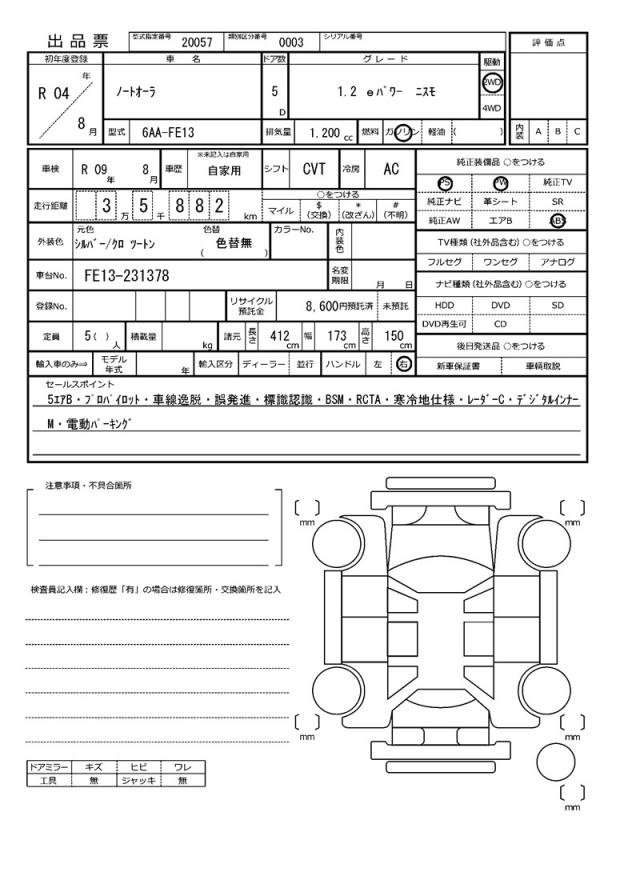 出品票 型式指定番号 20057 類別区分番号 0003 シリアル番号
評価点
初年度登録 車名 ドア数 グレード 駆動
R 04 年 8 月 ノートオーラ 5 D 1.2 eパワー ニスモ 2WD 4WD
型式 6AA-FE13 排気量 1.200 cc 燃料 ガソリン 軽油 ( ) 内装 A B C
車検 R 09 年 8 月 車歴 ※未記入は自家用 自家用 シフト CVT 冷房 AC
純正装備品 ○をつける
PS PW 純正TV
純正ナビ 革シート SR
純正AW エアB ABS
走行距離 3 5 万 8 8 2 千 km ○をつける
マイル $ (交換) * (改ざん) # (不明)
外装色 元色 シルバー/クロ ツートン 色替 ( 色替無 ) カラーNo. 内装色
TV種類 (社外品含む) ○をつける
フルセグ ワンセグ アナログ
車台No. FE13-231378 名変期限 月 日
ナビ種類 (社外品含む) ○をつける
HDD DVD SD
DVD再生可 CD
登録No. リサイクル預託金 8,600円預託済 未預託
定員 5( ) 人 積載量 kg 諸元 長さ 412 cm 幅 173 cm 高さ 150 cm
後日発送品 ○をつける
新車保証書 車輌取説
輸入車のみ⇒ モデル年式 年 輸入区分 ディーラー 並行 ハンドル 左 右
セールスポイント
5エアB・プロパイロット・車線逸脱・誤発進・標識認識・BSM・RCTA・寒冷地仕様・レーダーC・デジタルインナー
M・電動パーキング
注意事項・不具合箇所
検査員記入欄:修復歴「有」の場合は修復箇所・交換箇所を記入
mm
mm
mm
mm
mm
ドアミラー キズ ヒビ ワレ
工具 無 ジャッキ 無